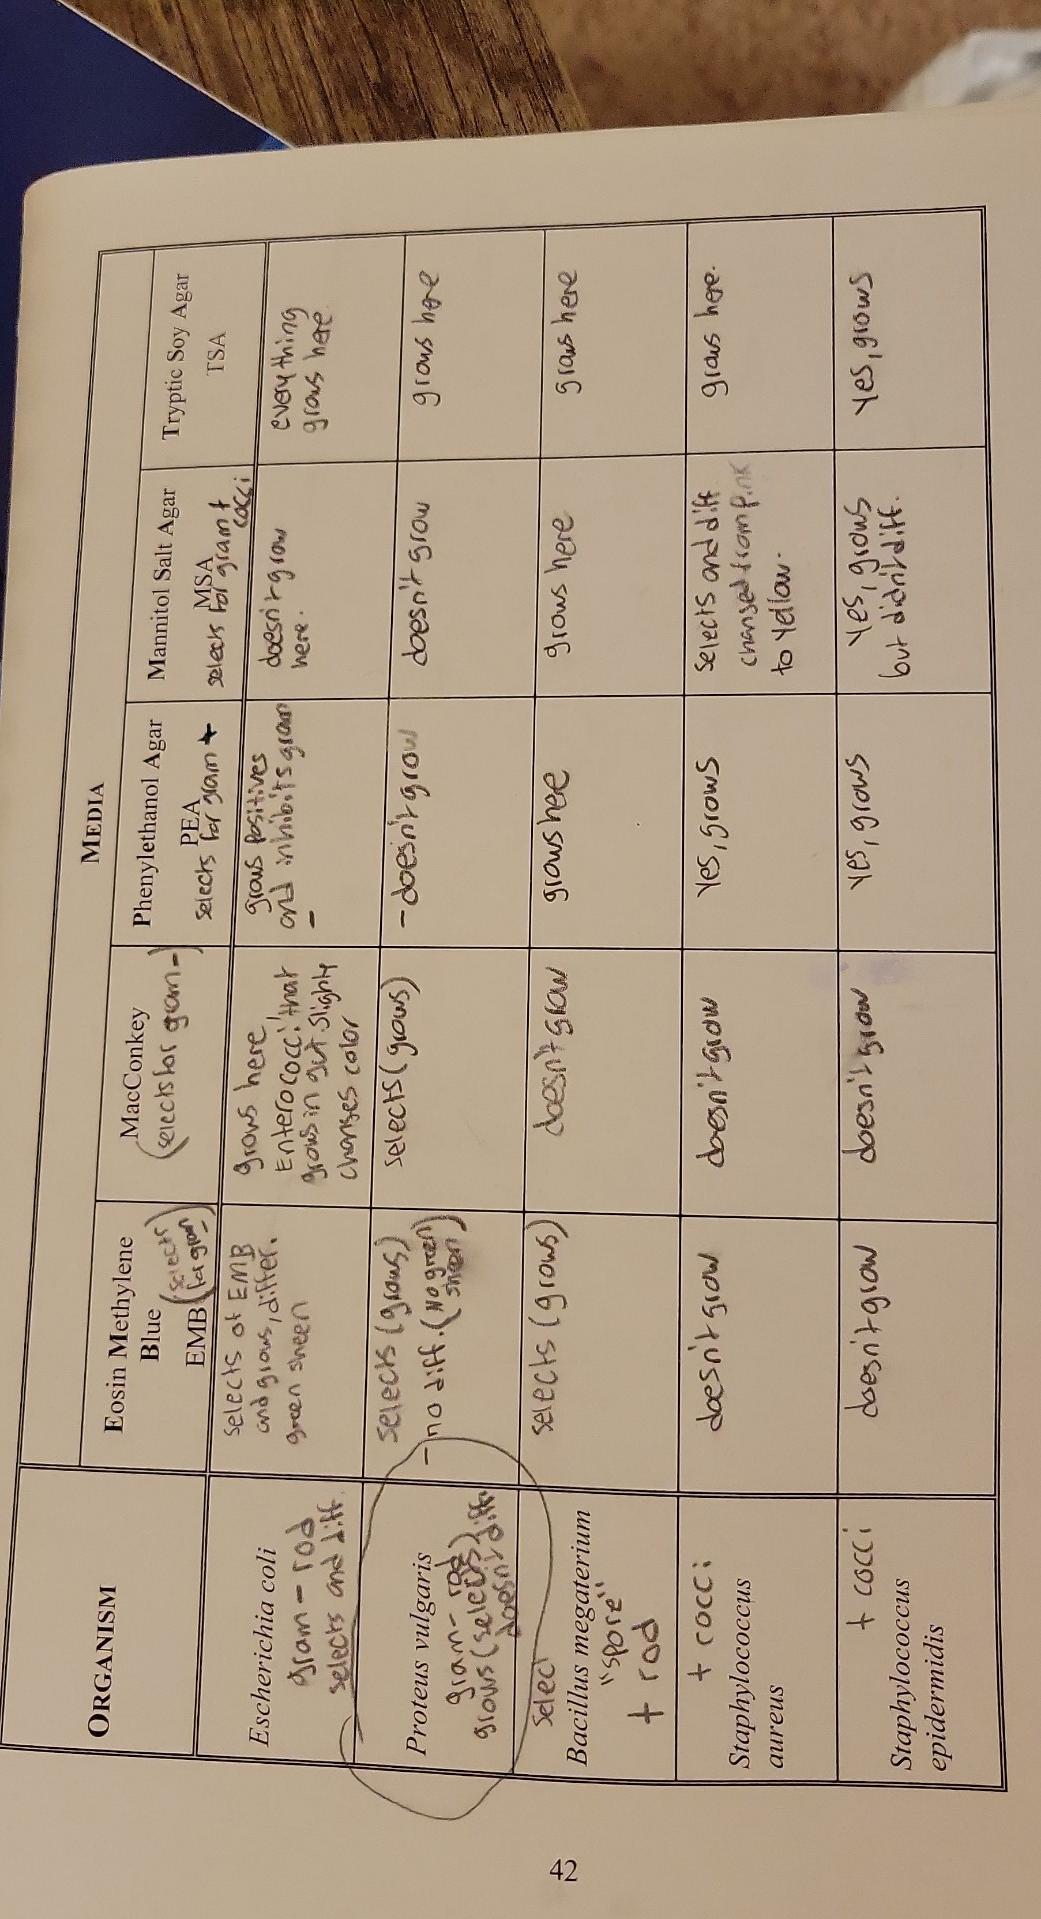 MEDIA
ORGANISM
Eosin Methylene
Blue (selects
EMB for gram -)
MacConkey
(selects for gram -)
Phenylethanol Agar
PEA
selects for gram +
Mannitol Salt Agar
MSA
selects for gram +
cocci
Tryptic Soy Agar
TSA
Escherichia coli
gram - rod
selects and diff.
selects of EMB
and grows, differ.
green sheen
grows here
Enterococci that
grows in gut slighty
changes color
grows positives
and inhibits gram
-
doesn't grow
here.
everything
grows here
Proteus vulgaris
gram- rod
grows (selects)
doesn't diff.
selects (grows)
-no diff. (No green
sheen)
selects (grows)
-doesn't grow
doesn't grow
grows here
Selec
Bacillus megaterium
"spore"
+ rod
selects (grows)
doesn't grow
grows here
grows here
grows here
+ cocci
Staphylococcus
aureus
doesn't grow
doesn't grow
Yes, grows
Selects and diff
changed from pink
to yellow.
grows here.
+ cocci
Staphylococcus
epidermidis
doesn't grow
doesn't grow
Yes, grows
Yes, grows
but didn't diff.
Yes, grows
42